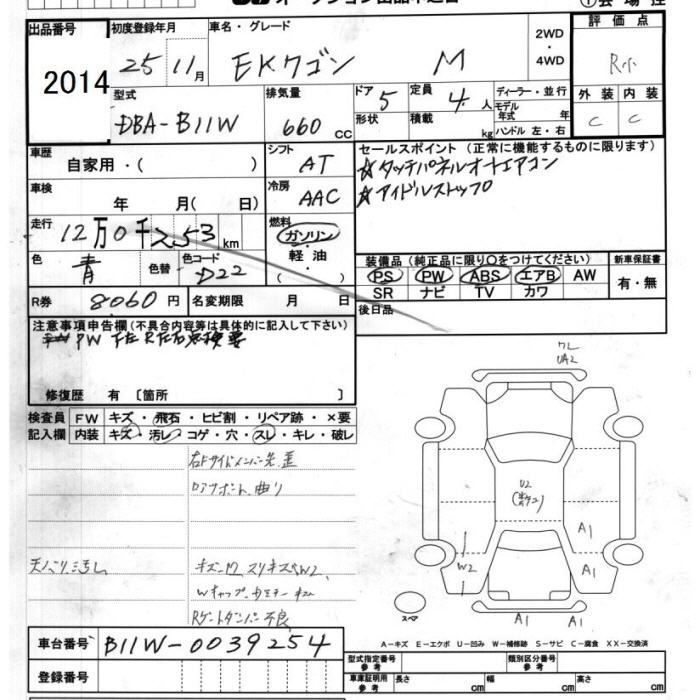 出品番号
2014
初度登録年月
25 11月
車名・グレード
EKワゴン M
2WD
・
4WD
評価点
R小
外装 内装
C C
型式
DBA-B11W
排気量
660 CC
ドア 5
形状
定員 4 人
積載 kg
ディーラー・並行
モデル
年式 年
ハンドル 左・右
車歴
自家用・(
シフト
AT
セールスポイント (正常に機能するものに限ります)
☆タッチパネルオートエアコン
☆アイドルストップ
車検
年 月( 日)
冷房
AAC
走行
12万0千253 km
燃料
ガソリン
・
軽油
・
( )
色
青
色替
色コード
D22
装備品 (純正品に限り○をつけてください)
PS PW ABS エアB AW
SR ナビ TV カワ
新車保証書
有・無
R券 8060円
名変期限 月 日
後日品
注意事項申告欄(不具合内容等は具体的に記入して下さい)
PW
修復歴 有 〔箇所 〕
検査員 FW キズ・飛石・ヒビ割・リペア跡・×要
記入欄 内装 キズ・汚レ・コゲ・穴・スレ・キレ・破レ
右Fサイドメンバー先歪
ロアサポート曲り
天バリ汚し
スリキズ W2
Rゲートダンパー不良
ワレ
UA2
U2
A1
W2
A1
A1 A1
スペア
車台番号 B11W-0039254
A-キズ E-エクボ U-凹み W-補修跡 S-サビ C-腐食 XX-交換済
登録番号
型式指定番号
参考
類別区分番号
参考
車庫証明用
参考
長さ cm 幅 cm 高さ cm